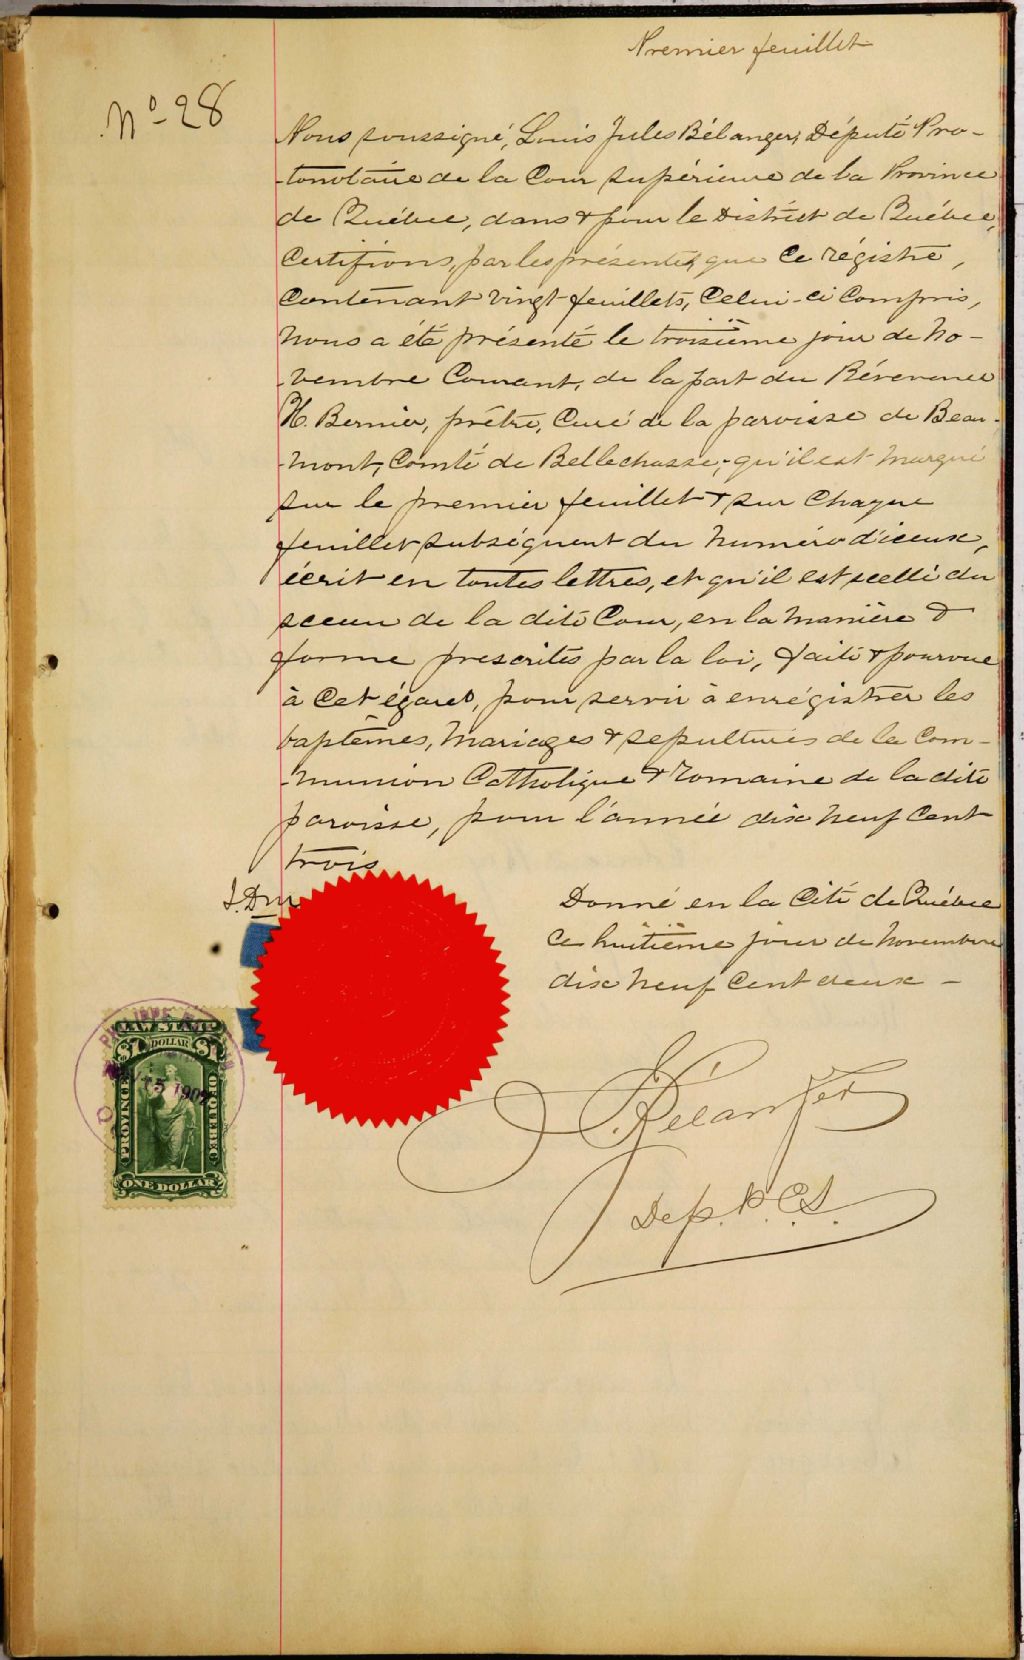 Premier feuillet
No 28
Nous soussigné, Louis Jules Bélanger, Député Pro-
-tonotaire de la Cour supérieure de la Province
de Québec, dans & pour le District de Québec,
Certifions, par les présentes, que ce régistre,
Contenant vingt feuillets, Celui-ci Compris,
nous a été présenté le troisième jour de No-
-vembre Courant, de la part du Réverence
H. Bernier, prêtre, Curé de la paroisse de Beau-
-mont, Comté de Bellechasse; qu'il est marqué
sur le premier feuillet & sur Chaque
feuillet subséquent du numéro d'iceux,
écrit en toutes lettres, et qu'il est scellé du
sceau de la dite Cour, en la manière &
forme prescrites par la loi, faite & pourvue
à Cet égard, pour servir à enrégistrer les
baptêmes, mariages & sépultures de la Com-
-munion Catholique & Romaine de la dite
paroisse, pour l'année dix neuf Cent
trois
Donné en la Cité de Québec
Ce huitième jour de Novembre
dix neuf Cent deux -
LAW STAMP
$1 DOLLAR $1
PROVINCE
OF QUEBEC
ONE DOLLAR
15 1902
Bélanger
Dep. P. C. S.